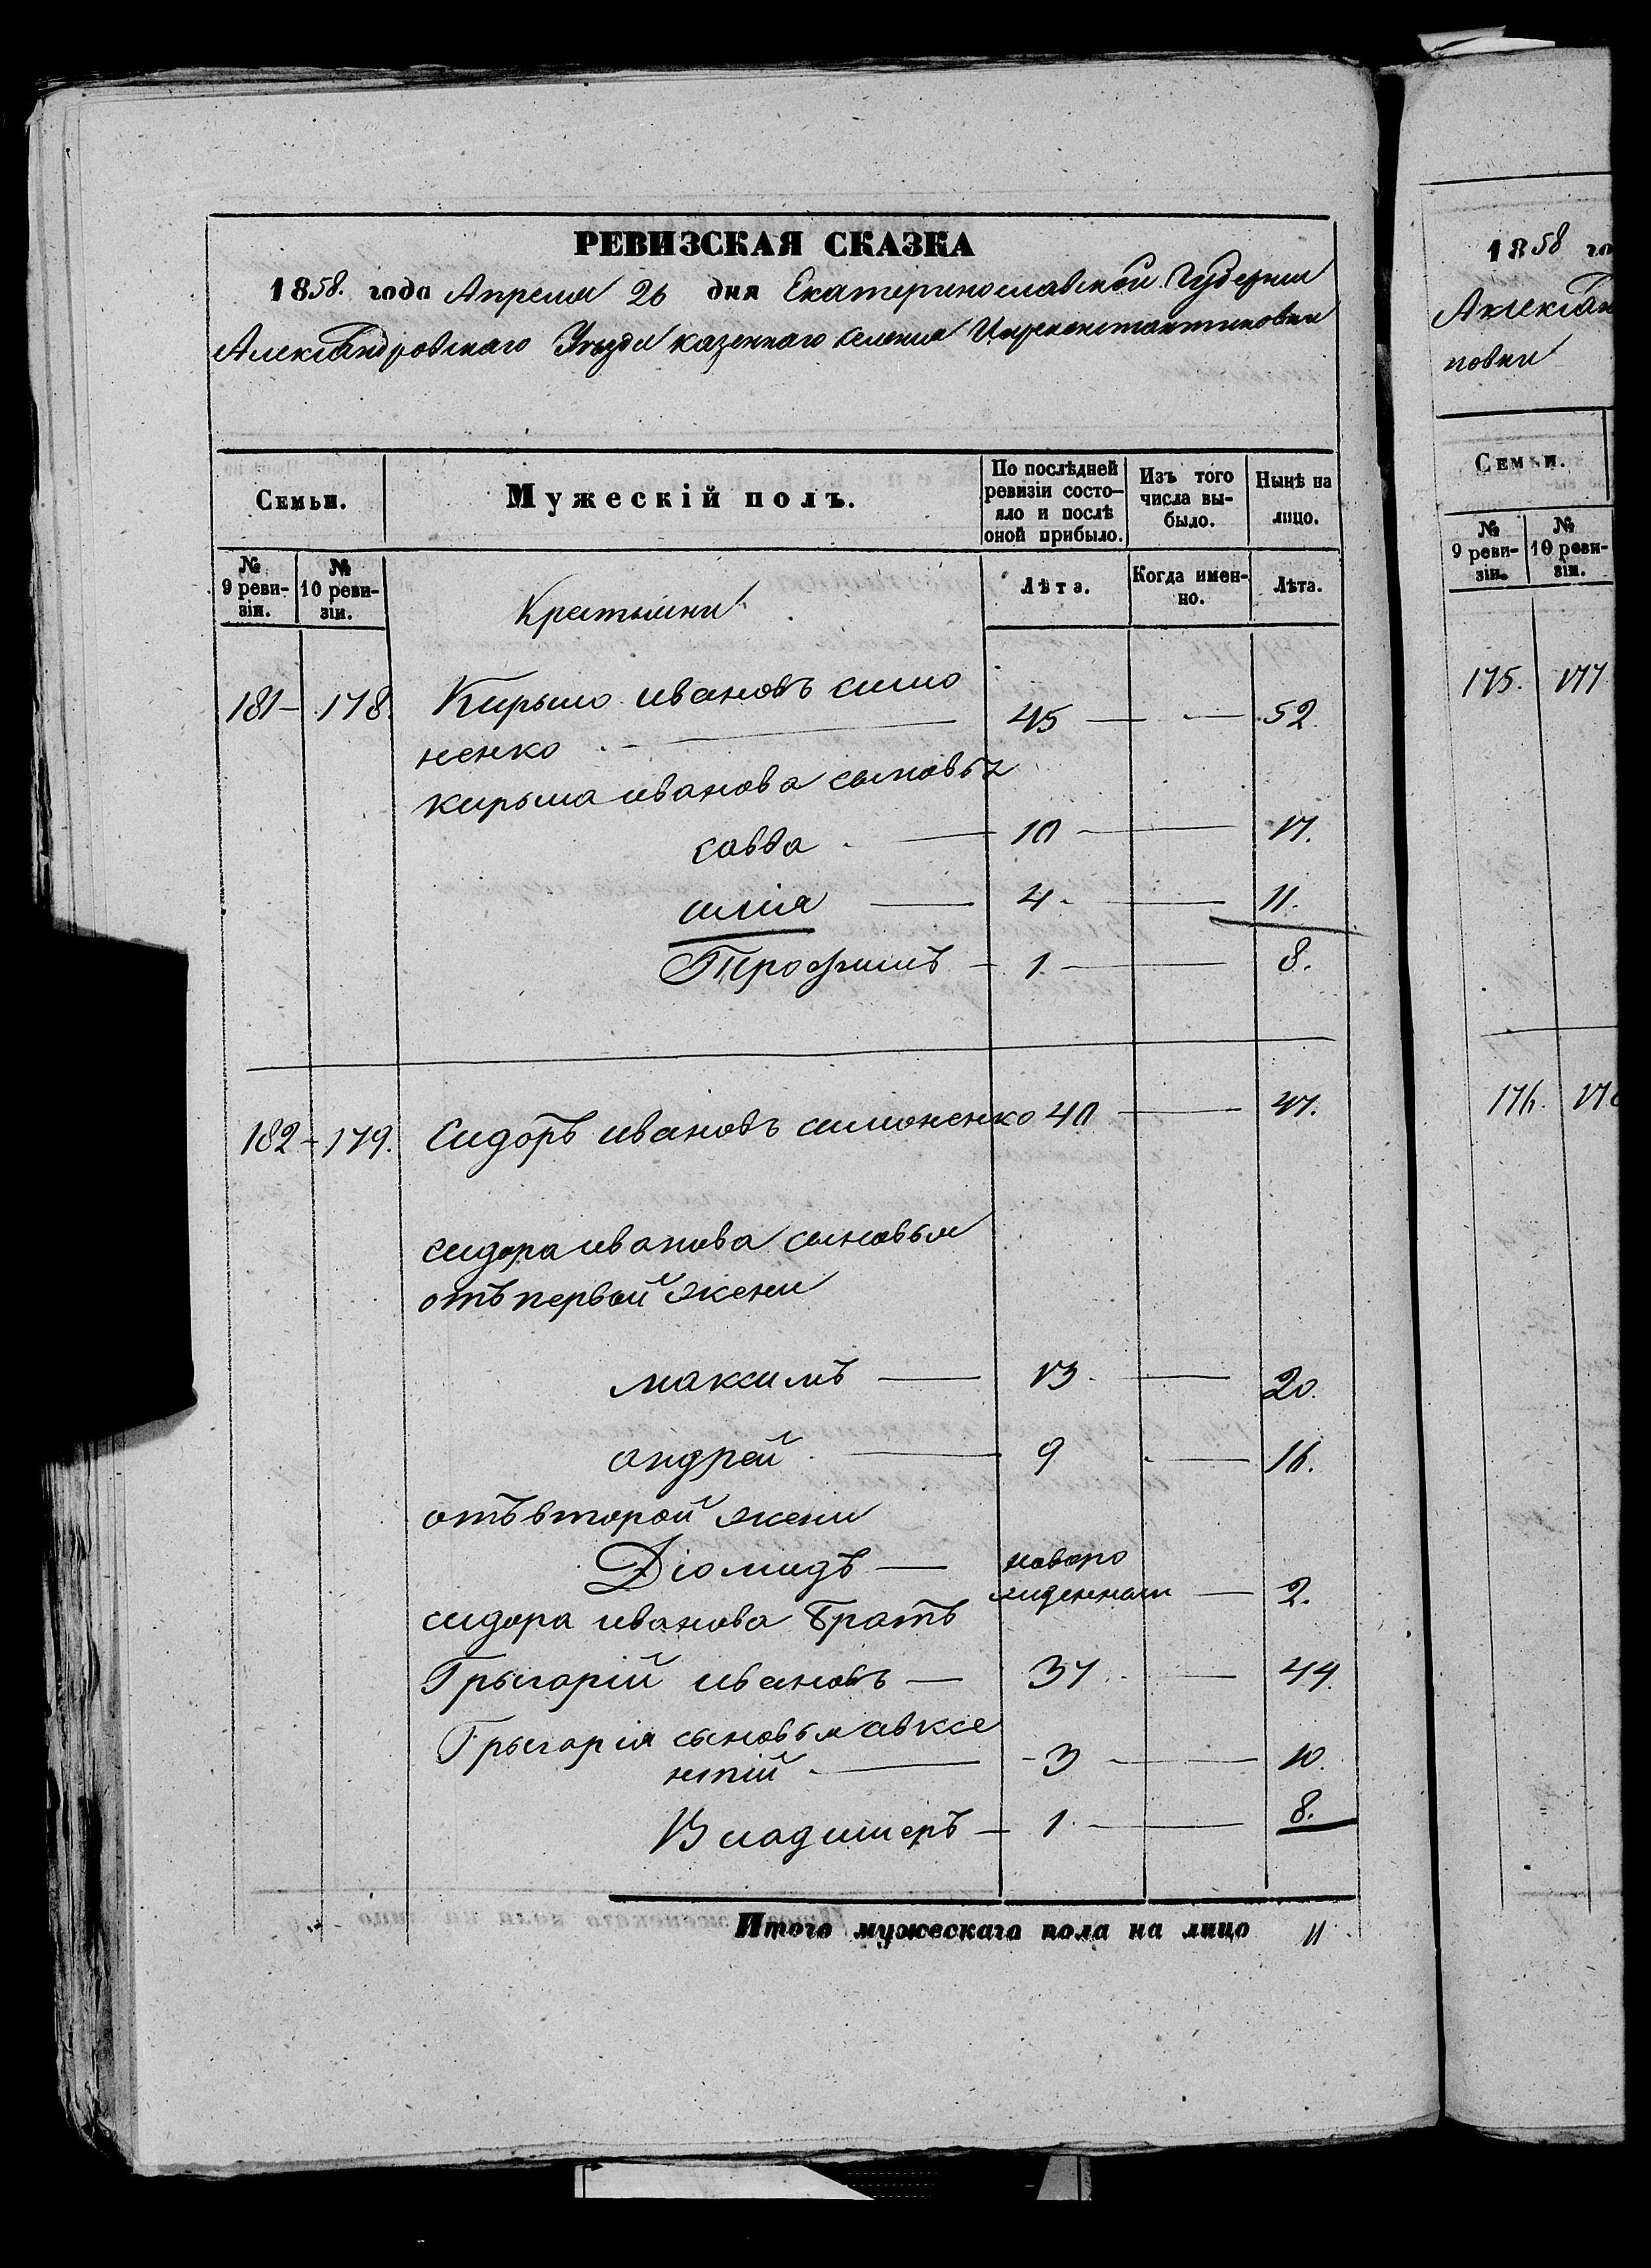 РЕВИЗСКАЯ СКАЗКА
1858. года Апреля 26 дня Екатеринославской Губернии
Александровскаго Уезда казеннаго селения Цареконстантиновки
Семьи.
Мужескій полъ.
По послѣдней ревизіи состо-яло и послѣ оной прибыло.
Изъ того числа вы-было.
Нынѣ на лицо.
№ 9 реви-зіи.
№ 10 реви-зіи.
Лѣта.
Когда имен-но.
Лѣта.
181 - 178. Кирыло ивановъ симо
ненко 45 52.
кирыла иванова сыновья
савва 10 17.
илія 4 11.
Трофимъ 1. 8.
182 - 179. Сидоръ ивановъ симоненко 40 47.
сидора иванова сыновья
отъ первой жени
максимъ 13. 20.
андрей 9 16.
отъ второй жени
Діомидъ новоро
жденном 2.
сидора иванова братъ
Грыгорій ивановъ 37 44.
Грыгорія сыновья авксе
нтій 3 10.
Владимеръ 1. 8.
Итого мужескаго пола на лицо 11
1858 го
Александ
новки
Семьи.
№ 9 реви-зіи.
№ 10 реви-зіи.
175. 177
176.